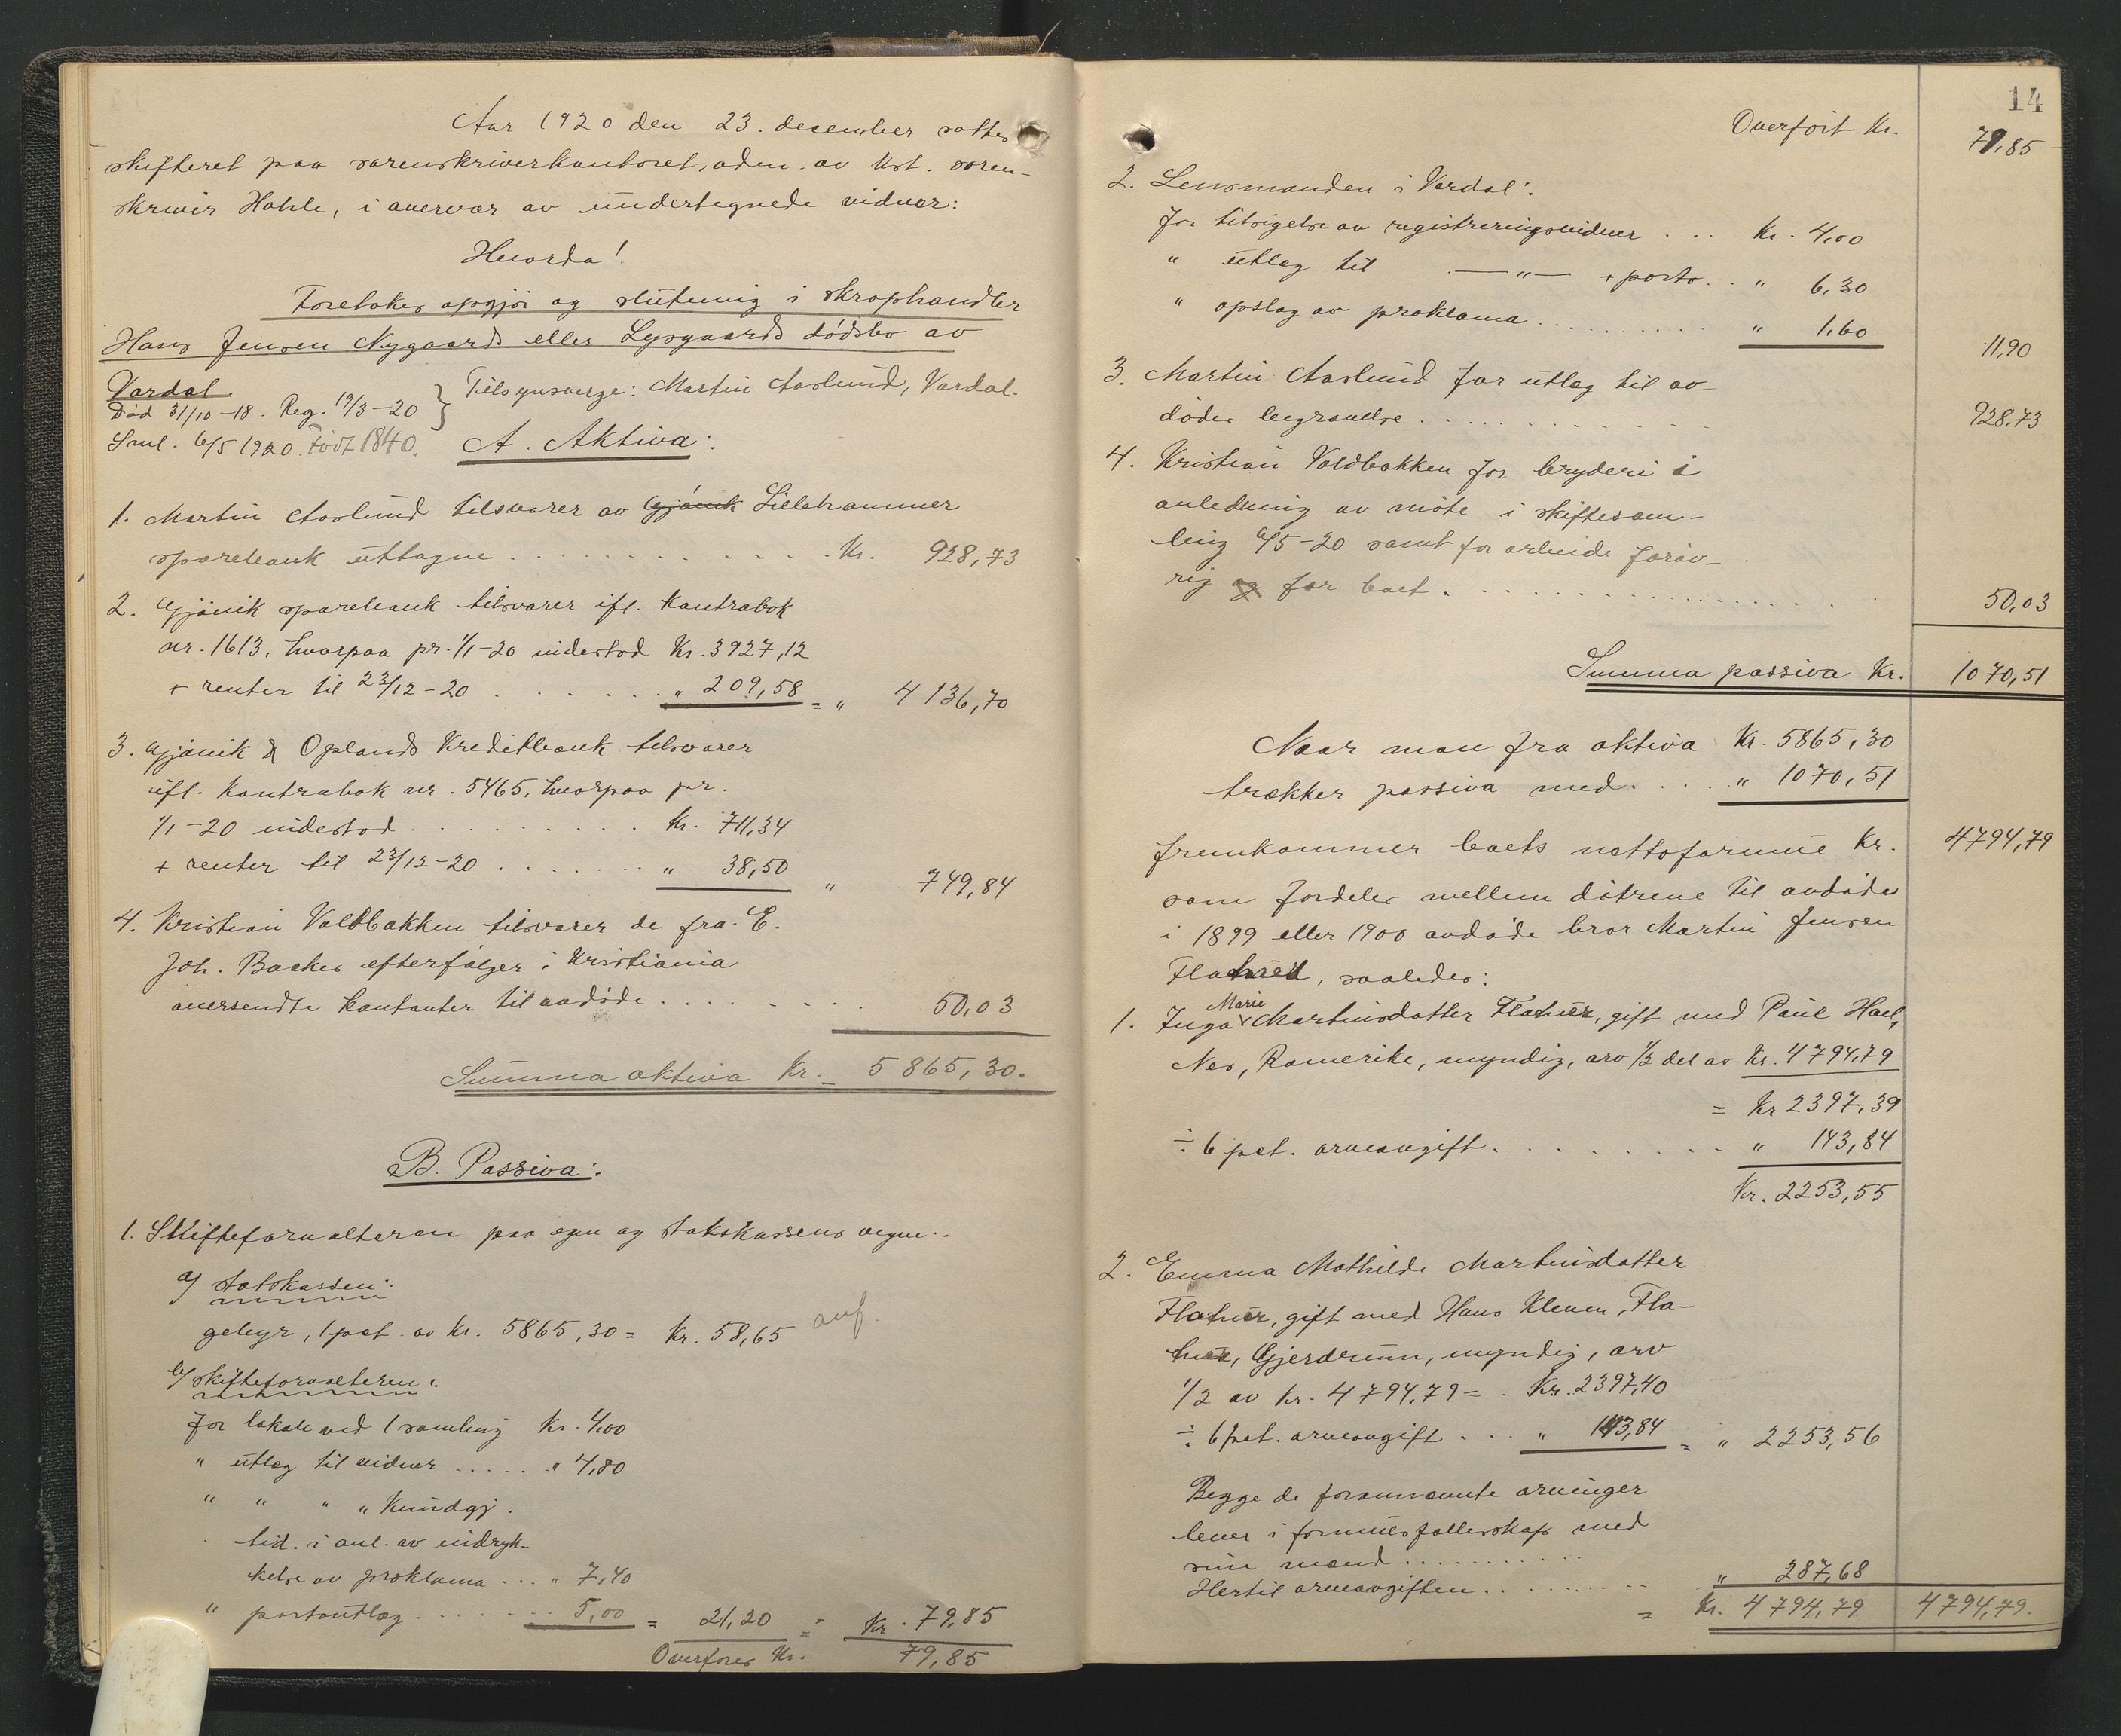 Aar 1920 den 23. december sattes
skifteret paa sorenskriverkontoret, adm. av kst. soren-
skriver Hohle, i overvær av undertegnede vidner:
Hvorda!
Foretokes opgjør og slutning i skraphandler
Hans Jensen Nygaards eller Lysgaards dødsbo av
Vardal.
Død 31/10-18. Reg. 19/3-20 } Tilsynsverge: Martin Aaslund, Vardal.
Sml. 6/5 1920. Født 1840. A. Aktiva:
1. Martin Aaslund tilsvarer av Gjøvik Lillehammer
sparebank uttagne . . . . . . . . . . . . Kr. 928,73
2. Gjøvik sparebank tilsvarer ifl. kontrabok
nr. 1613, hvorpaa pr. 1/1-20 indestod Kr. 3927,12
+ renter til 23/12-20 . . . . . . . " 209,58 = " 4136,70
3. Gjøvik & Oplands Kreditbank tilsvarer
ifl. kontrabok nr. 5465, hvorpaa pr.
1/1-20 indestod . . . . . . . . . . Kr. 711,34
+ renter til 23/12-20 . . . . . . . " 38,50 " 749,84
4. Kristian Voldbakken tilsvarer de fra E.
Joh. Backes efterfølger i Kristiania
oversendte kontanter til avdøde . . . . . . . . 50,03
Summa aktiva Kr. = 5865,30.
B. Passiva:
1. Skifteforvalteren paa egne og statskassens vegne:
a) Statskassen:
gebyr, 1 pct. av Kr. 5865,30 = Kr. 58,65
b) skifteforvalteren:
for lokale ved 1 samling Kr. 4,00
" utlæg til vidner . . . . . " 4,80
" " " " Kundgj.
tid. i anl. av indryk-
kelse av proklama . . . " 7,40
" portoutlæg . . . . . . . . 5,00 = 21,20 = Kr. 79,85
Overføres Kr. 79,85
14
Overført Kr. 79,85
2. Lensmanden i Vardal:
for tilsigelse av registreringsvidner . . . Kr. 4,00
" utlæg til —"— + porto . . " 6,30
" opslag av proklama . . . . . . . . . . " 1,60
11,90
3. Martin Aaslund for utlæg til av-
dødes begravelse . . . . . . . . . . . . . 928,73
4. Kristian Voldbakken for bryderi i
anledning av møte i skiftesam-
ling 6/5-20 samt for arbeide forøv-
rig for boet . . . . . . . . . . . . . . . . . . 50,03
Summa passiva Kr. 1070,51
Naar man fra aktiva Kr. 5865,30
trækker passiva med . . . . . " 1070,51
fremkommer boets nettoformue Kr. 4794,79
som fordeles mellem døtrene til avdødes
i 1899 eller 1900 avdøde bror Martin Jensen
saaledes:
Marie
1. Inga Martinsdatter gift med Paul
Nes, Romerike, myndig, arv 1/2 del av Kr. 4794,79
= Kr 2397,39
÷ 6 pct. arveavgift . . . . . . . . . " 143,84
Kr. 2253,55
2. Emma Mathilde Martinsdatter
gift med Hans Kleven,
Gjerdrum, myndig, arv
1/2 av Kr. 4794,79 = . Kr. 2397,40
÷ 6 pct. arveavgift . . . " 143,84 = " 2253,56
Begge de forannævnte arvinger
lever i formuesfællesskap med
sine mænd . . . . . . . . . . .
Hertil arveavgiften . . . . . . . . . . " 287,68
= Kr. 4794,79 4794,79.